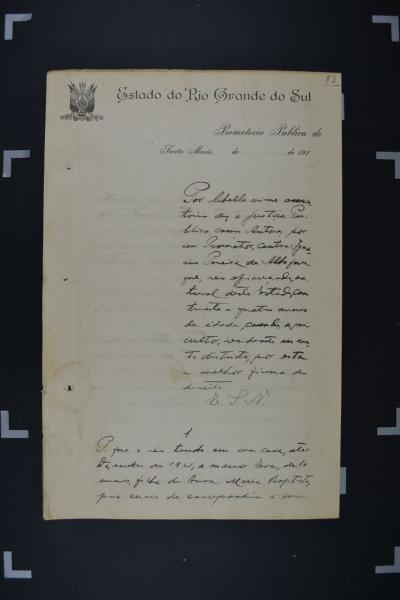 83
Estado do Rio Grande do Sul
Promotoria Publica de
Santa Maria, de de 192
Por libello crime accusa-
torio diz a Justiça Pu-
blica, como Autora, por
seu Promotor, contra Igna-
cio Pereira de Albuquer-
que, réo afiançado, na-
tural deste Estado, com
trinta e quatro annos
de idade, casado, agri-
cultor, residente
districto, por esta
e melhor forma de
direito
E. S. N.
1
P. que o réo tendo em sua casa,
Dezembro de 1921, a menor
annos, filha de Maria Baptista,
para servir de companhia a sua